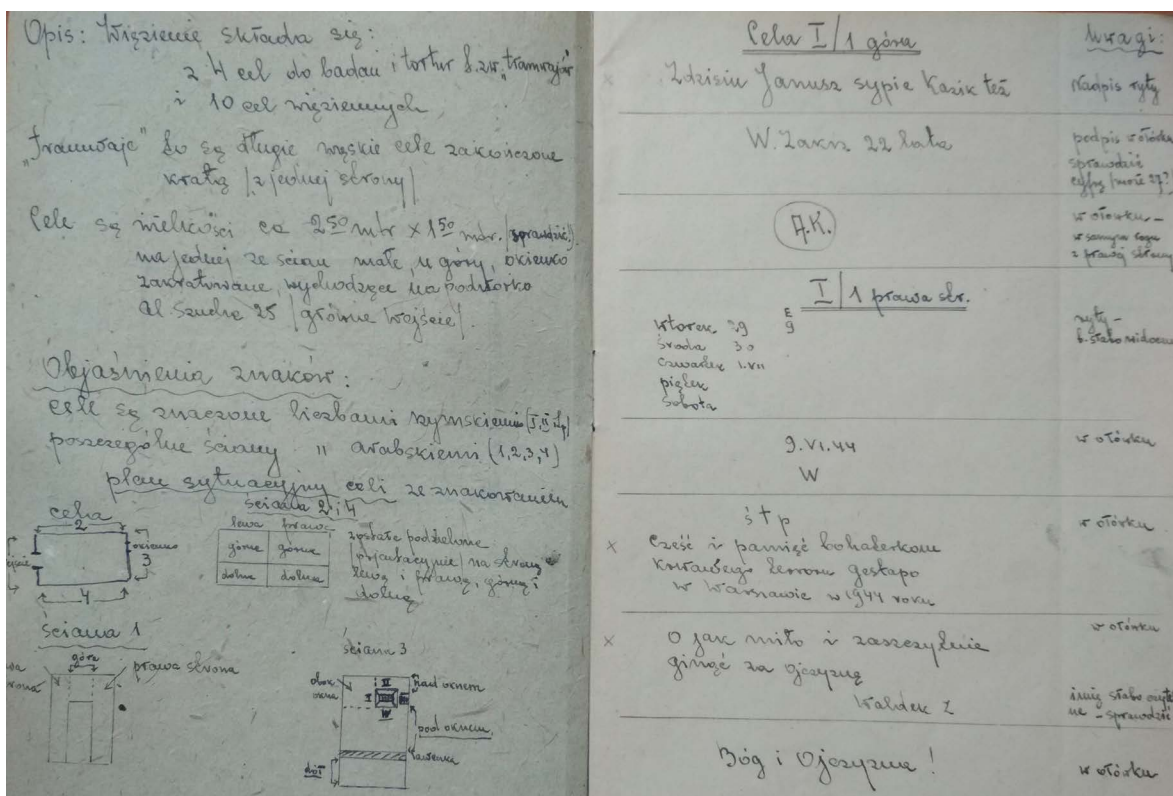 Opis: Więzienie składa się:
z 4 cel do badań i tortur t.zw. „tramwajów"
i 10 cel więziennych
„Tramwaje" to są długie wąskie cele zakończone
kratą /z jednej strony/
Cele są wielkości ca 2 50 mtr × 1 50 mtr. /sprawdzić/
na jednej ze ścian małe, u góry, okienko
zakratowane, wychodzące na podwórko
Al. Szucha 25 /główne wejście/.
Objaśnienia znaków:
cele są znaczone liczbami rzymskiemi (I, II itp)
poszczególne ściany " arabskiemi (1,2,3,4)
plan sytuacyjny celi ze znakowaniem
ściana 2 i 4
cela
2
okienko
3
4
lewa prawa
górna górna
dolna dolna
zostałe podzielone
orjentacyjnie na stronę
lewą i prawą, górną i
dolną
ściana 1
góra
prawa strona
ściana 3
obok
okna
II
I III
IV
nad oknem
pod oknem
ławenka
dół
Cela I/1 góra
Uwagi:
× Zdzisiu Janusz sypie Kazik też
Nadpis ryty
W. Zakrz 22 lata
podpis w ołówku
sprawdzić
cyfrę /może 27?
A.K.
w ołówku –
w samym rogu
z prawej strony
I/1 prawa str.
wtorek 29 E 9
środa 30
czwartek 1.VII
piątek
sobota
ryty –
b. słabo widoczn
9.VI.44
W
w ołówku
ś † p
× Cześć i pamięć bohaterkom
krwawego terroru gestapo
w Warszawie w 1944 roku
w ołówku
× O jak miło i zaszczytnie
ginąć za ojczyznę
Waldek Z
w ołówku
imię słabo czytel
ne – sprawdzić
Bóg i Ojczyzna!
w ołówku